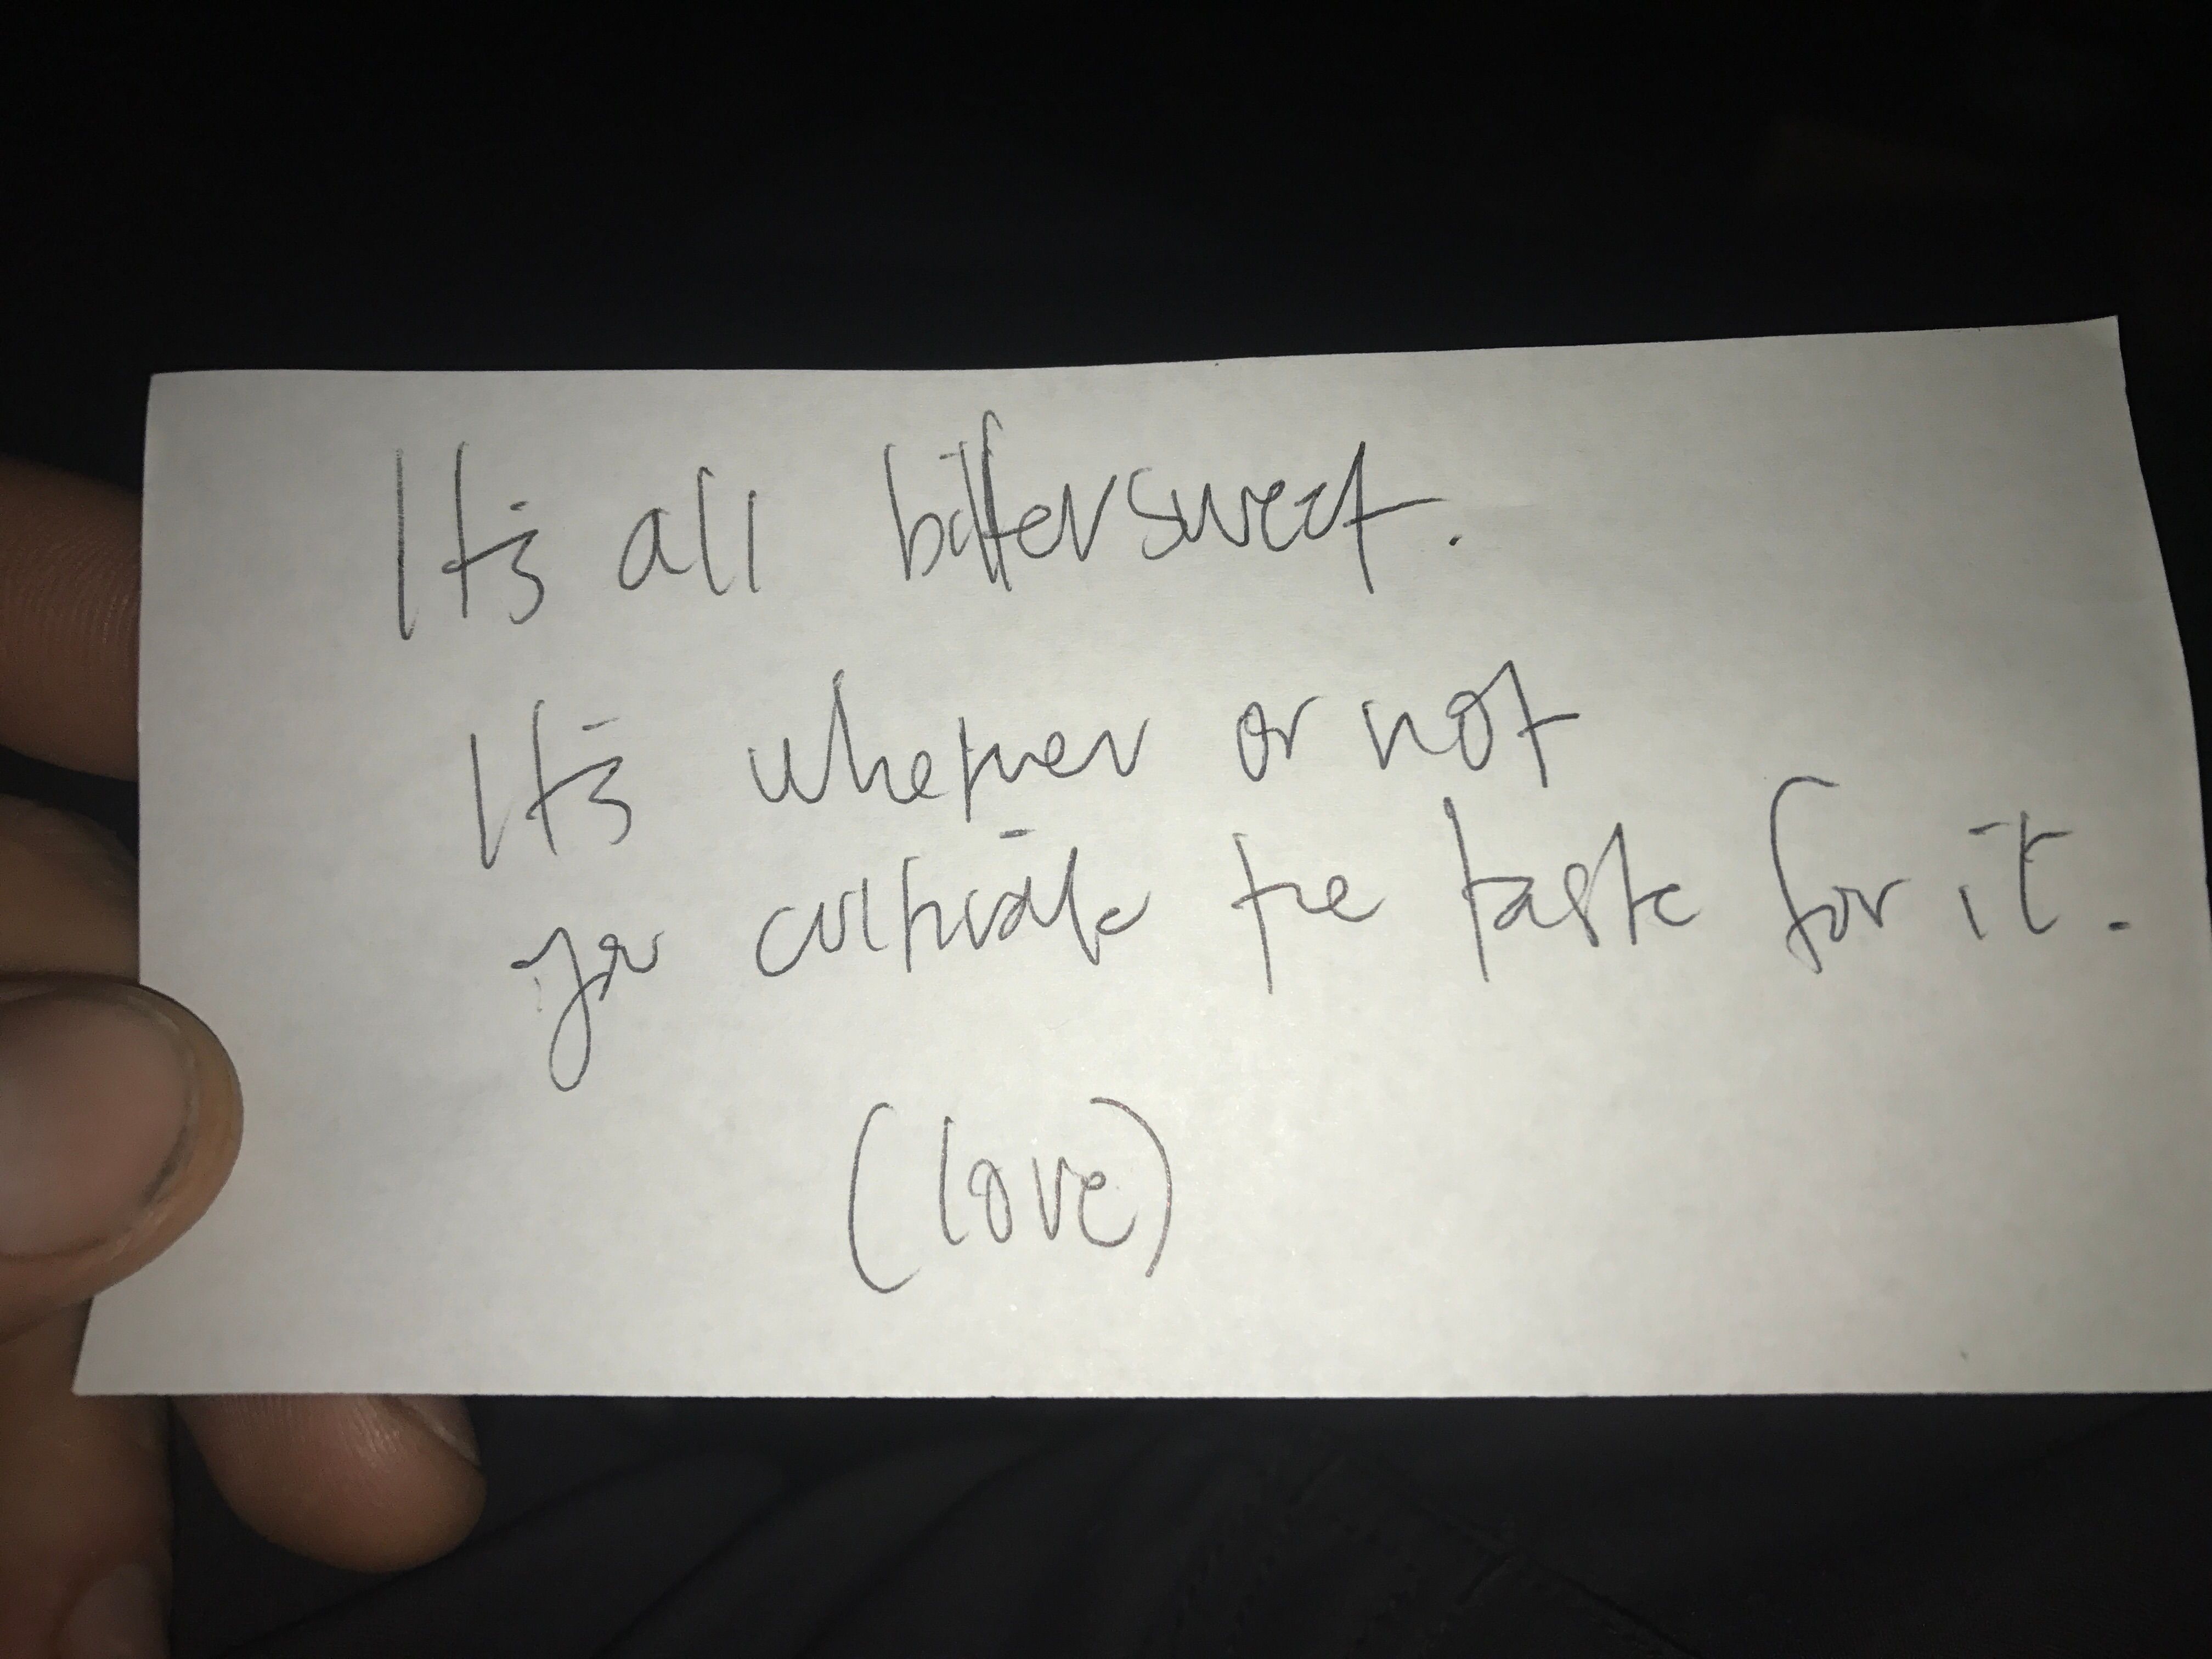 It's all bittersweet.
It's whether or not
you cultivate the taste for it.
(love)